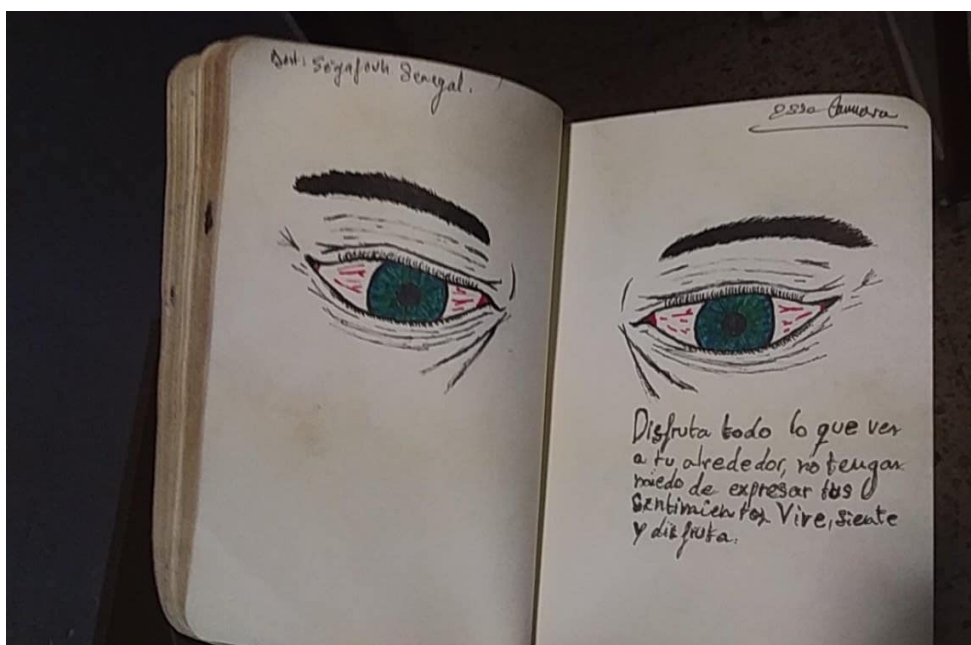 Senegal.
Disfruta todo lo que ves
a tu alrededor, no tengas
miedo de expresar tus
sentimientos Vive, siente
y disfruta.